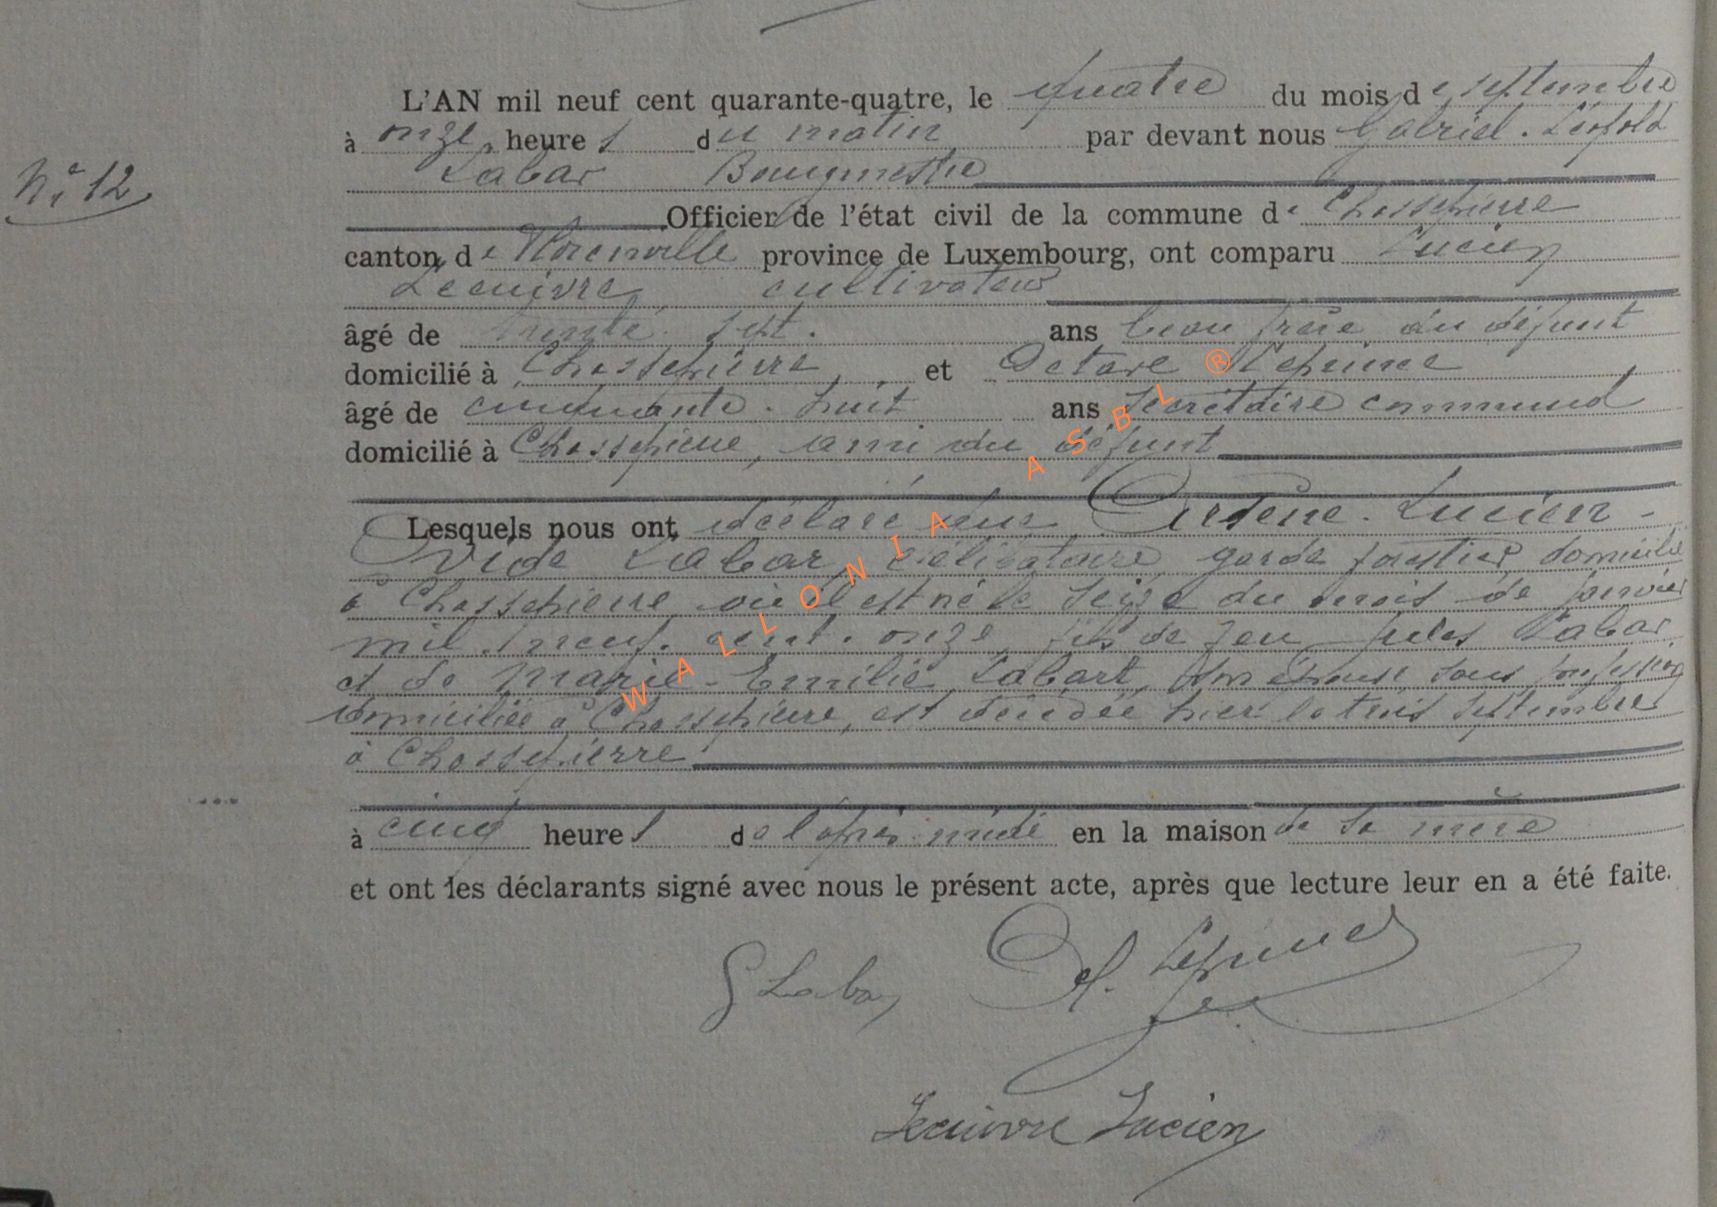 L'AN mil neuf cent quarante-quatre, le quatre du mois de septembre
à onze heures du matin par devant nous Gabriel. Léopold
N° 12
Labar Bourgmestre
Officier de l'état civil de la commune de Chassepierre
canton de Florenville province de Luxembourg, ont comparu Lucien
Lecuivre cultivateur
âgé de trente sept. ans beau frère du défunt
domicilié à Chassepierre, et Octave Leprince
âgé de cinquante. huit ans secrétaire communal
domicilié à Chassepierre, ami du défunt
Lesquels nous ont déclaré que Arsène. Lucien-
Ovide Labar, célibataire garde forestier, domicilié
à Chassepierre où il est né le seize du mois de janvier
mil. neuf. cent. onze, fils de feu Jules Labar
et de Marie-Emilie Labart, son épouse sans profession
domiciliée à Chassepierre, est décédé hier le trois septembre
à Chassepierre
à cinq heures de l'après-midi en la maison de sa mère
et ont les déclarants signé avec nous le présent acte, après que lecture leur en a été faite.
G Labar O. Leprince
Lecuivre Lucien
WALLONIA ASBL ®